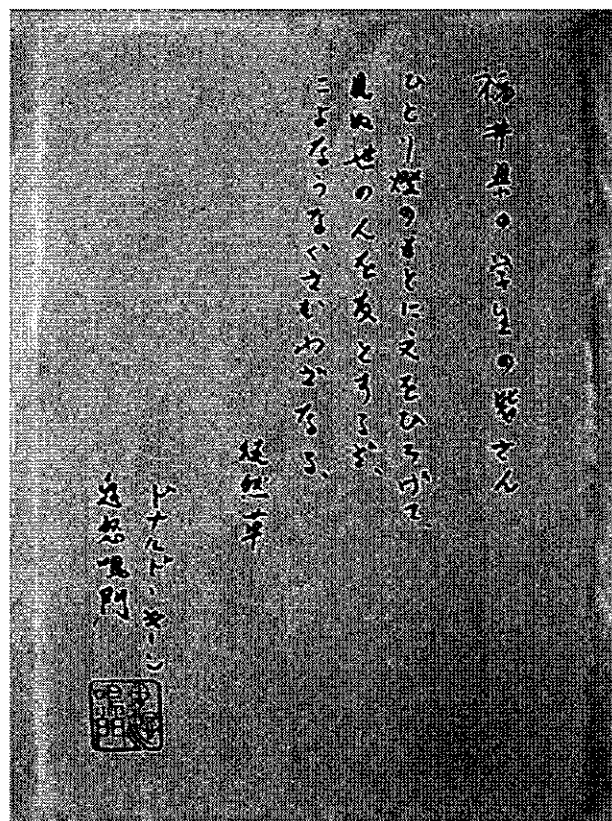 福井県の学生の皆さん
ひとり燈のもとに文をひろげて、
見ぬ世の人を友とするぞ、
こよなうなぐさむわざなる、
徒然草
ドナルド・キーン
鬼怒鳴門